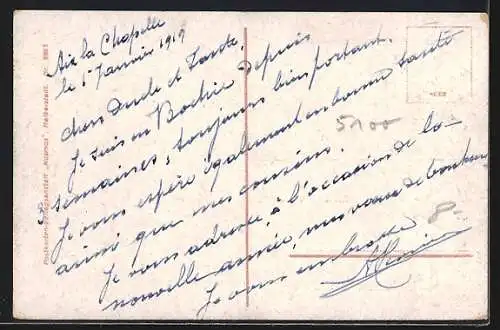 Aix la Chapelle
le 1er Janvier 1919
Chers Oncle et Tante,
Je suis en Bochie depuis
semaines, toujours bien portant.
Je vous espère également en bonne santé
ainsi que mes cousins.
Je vous adresse, à l'occasion de la
nouvelle année, mes vœux de bonheur
Je vous embrasse
5100
8-
Postkarten-Verlagsanstalt „Kosmos", Halberstadt.